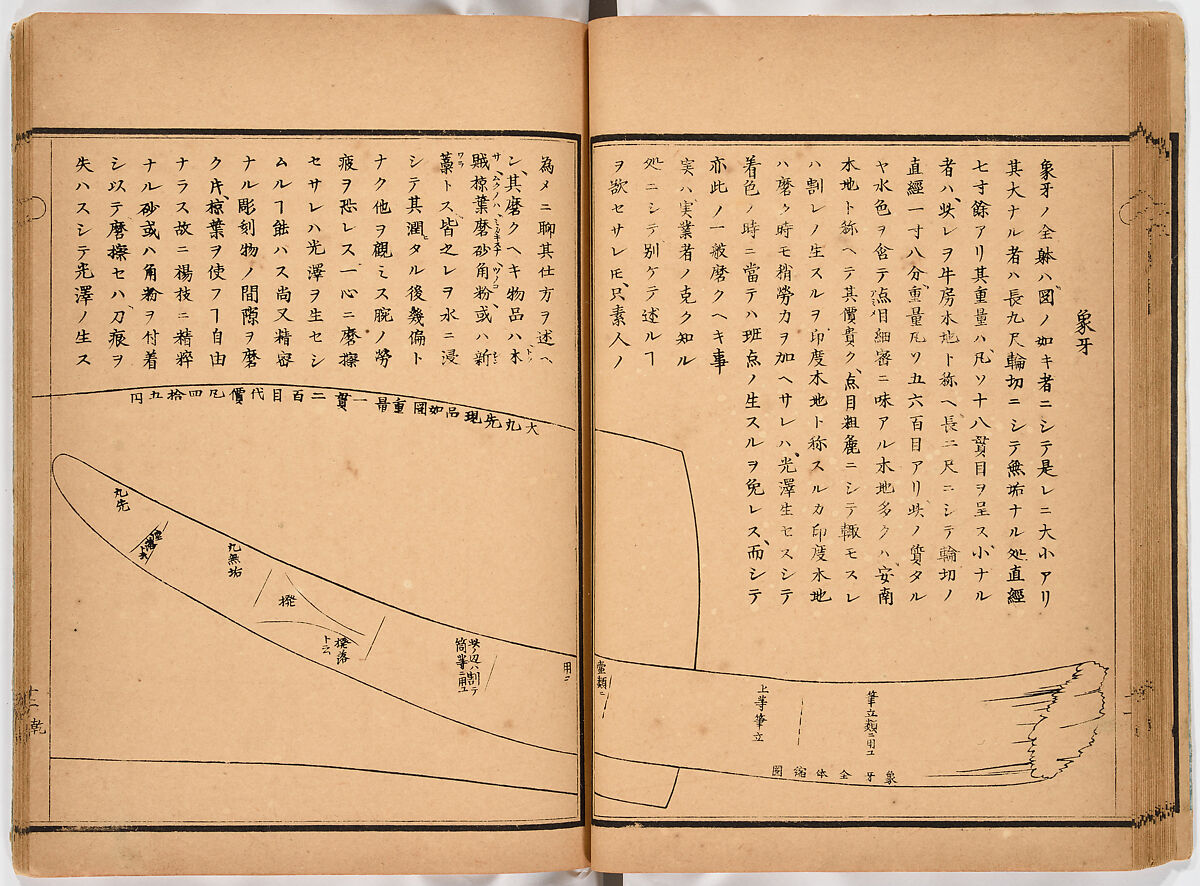 象牙
象牙ノ全躰ハ図ノ如キ者ニシテ是レニ大小アリ
其大ナル者ハ長九尺輪切ニシテ無垢ナル処直經
七寸餘アリ其重量ハ凡ソ十八貫目ヲ呈ス小ナル
者ハ此レヲ牛房木地ト称ヘ長二尺ニシテ輪切ノ
直經一寸八分重量凡ソ五六百目アリ此ノ質タル
ヤ水色ヲ含テ点目細審ニ味アル木地多クハ安南
木地ト称ヘテ其價貴ク点目粗麁ニシテ輙モスレ
ハ割レノ生スルヲ印度木地ト称スルカ印度木地
ハ磨ク時モ稍勞力ヲ加ヘサレハ光澤生セスシテ
着色ノ時ニ當テハ班点ノ生スルヲ免レス而シテ
亦此ノ一般磨クヘキ事
実ハ実業者ノ克ク知ル
処ニシテ別ケテ述ルヿ
ヲ欲セサレ𪜈只素人ノ
為メニ聊其仕方ヲ述ヘ
ン其磨クヘキ物品ハ木
賊椋葉磨砂角粉或ハ新
藁トス皆之レヲ水ニ浸
シテ其潤タル後幾偏ト
ナク他ヲ觀ミス腕ノ勞
疲ヲ恐レス一心ニ磨擦
セサレハ光澤ヲ生セシ
ムルヿ能ハス尚又精密
ナル彫刻物ノ間隙ヲ磨
ク片椋葉ヲ使フヿ自由
ナラス故ニ楊枝ニ精粹
ナル砂或ハ角粉ヲ付着
シ以テ磨擦セハ刀痕ヲ
失ハスシテ光澤ノ生ス
大丸先現品如図重量一貫二百目代價凡四拾五円
象牙全体縮図
筆立類ニ用ユ
上等筆立
壷類ニ
用ユ
此ノ辺ハ割テ
筒等ニ用ユ
撥落
ト云
撥
丸無垢
丸先
十二 乾